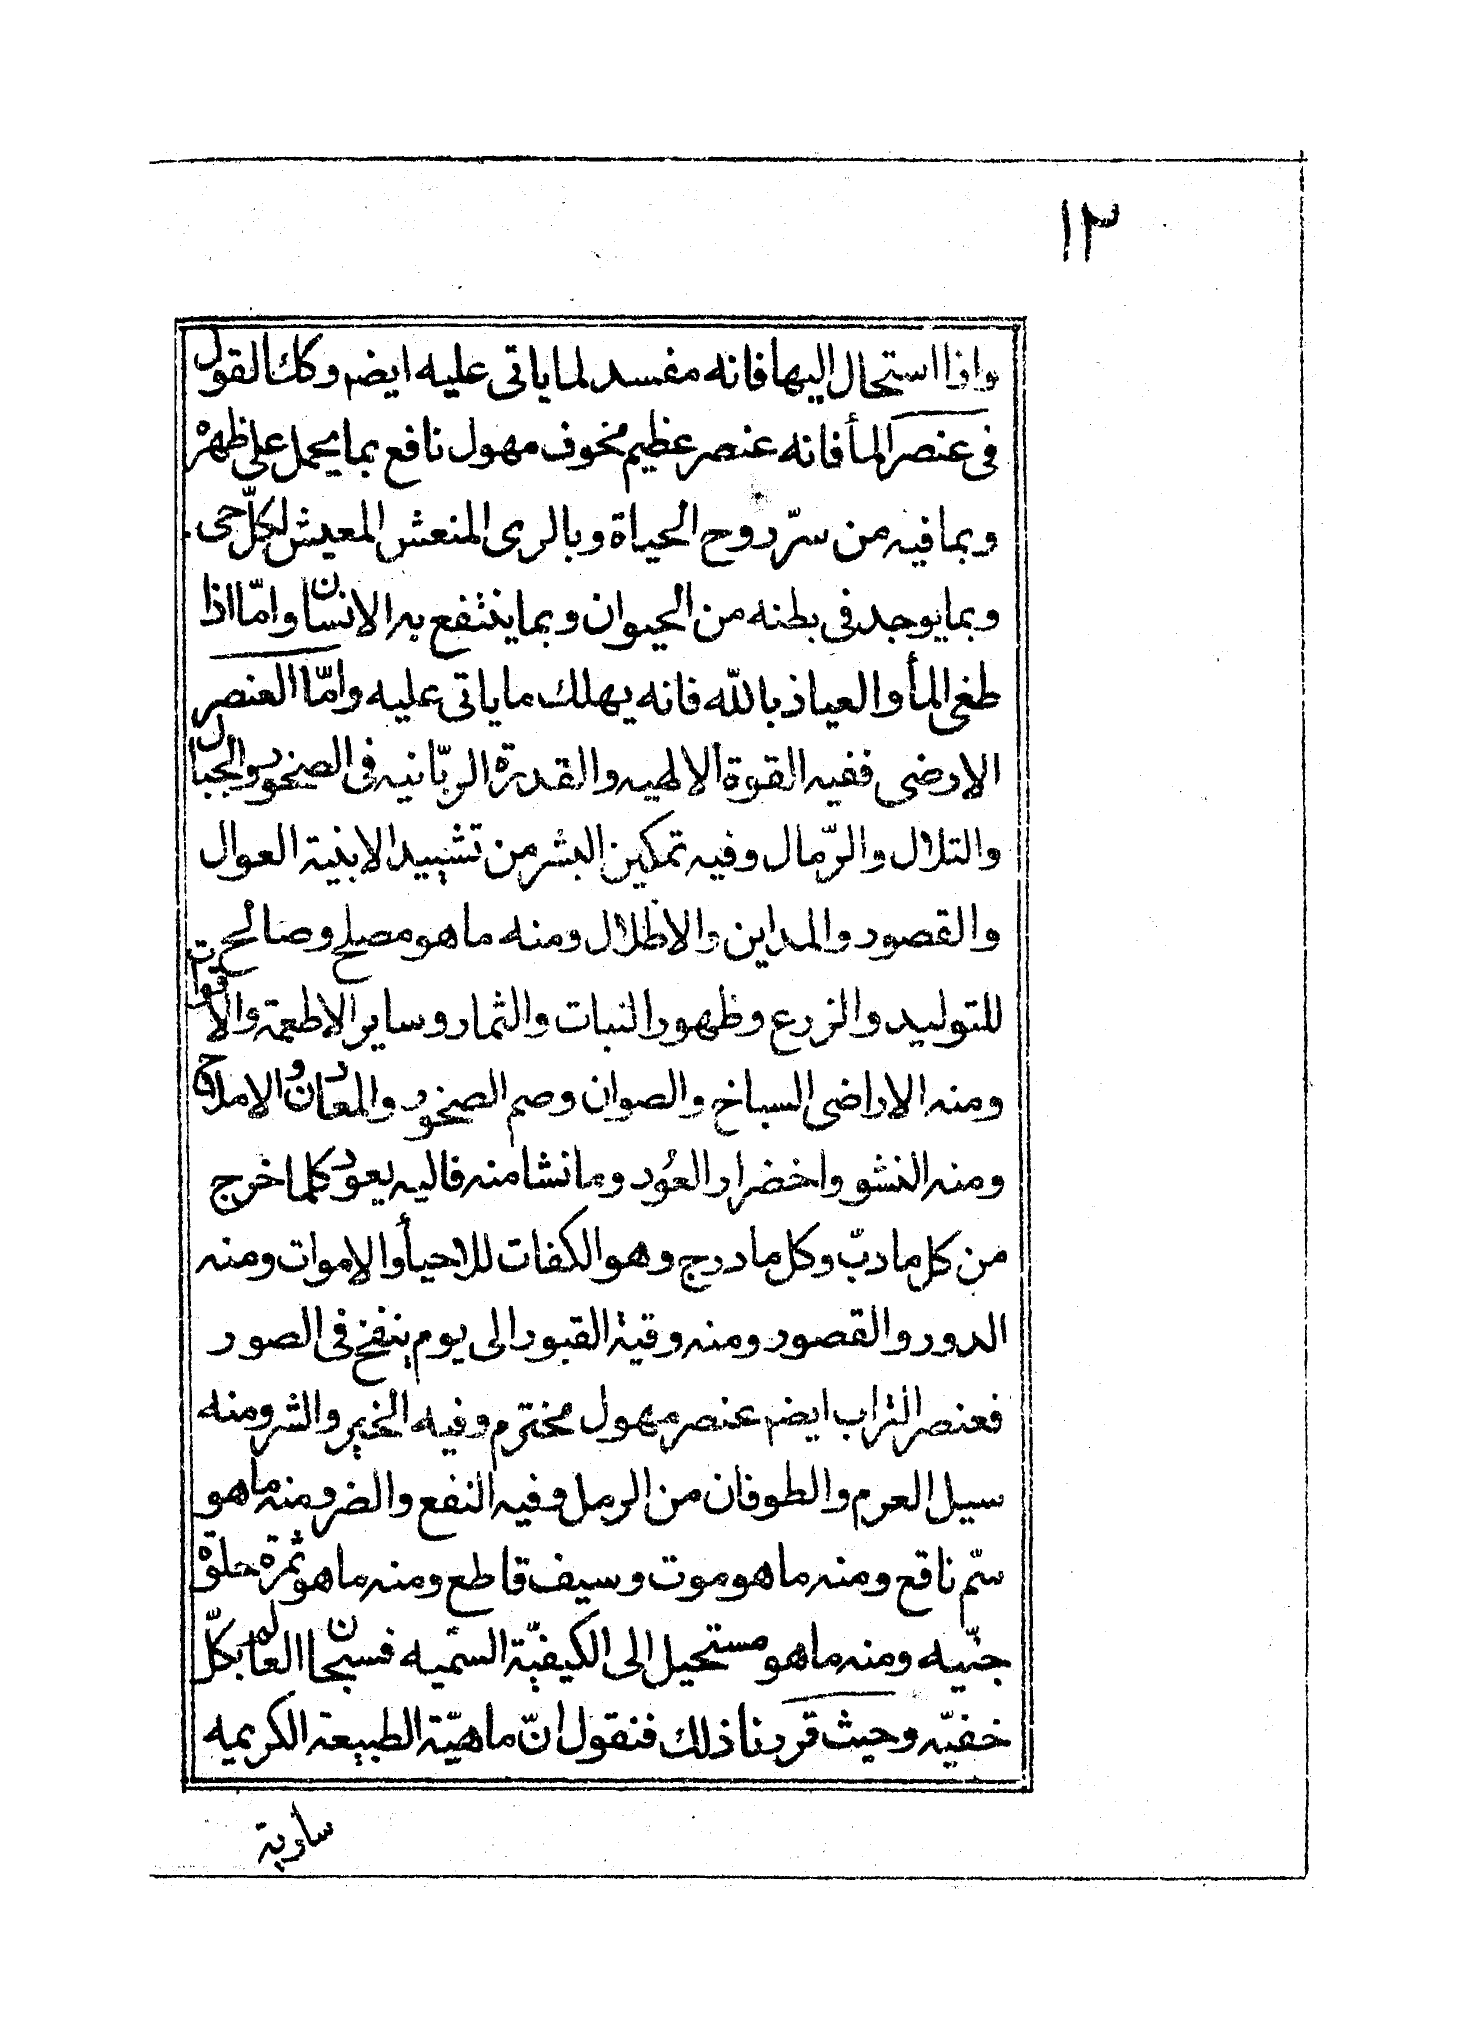 ١٢
واذا استحال اليها فانه مفسد لما ياتى عليه ايضم وكك القول
فى عنصر المأ فانه عنصر عظيم مخوف مهول نافع بما يحمل على ظهره
وبما فيه من سرّ روح الحياة وبالرى المنعش المعيش لكلّ حى
وبما يوجد فى بطنه من الحيوان وبما ينتفع به الانسان وامّا اذا
طغى المأ والعياذ بالله فانه يهلك ما ياتى عليه وامّا العنصر
الارضى ففيه القوة الالهيه والقدرة الربّانيه فى الصخور والجبال
والتلال والرّمال وفيه تمكين البشر من تشييد الابنية العوال
والقصور والمداين والاظلال ومنه ما هو مصلح وصالح
للتوليد والزرع وظهور النبات والثمار وساير الاطعمة والاقوات
ومنه الاراضى السباخ والصوان وصم الصخور والمعادن والاملاح
ومنه النشو واخضرار العُود وما نشا منه فاليه يعود كلما خرج
من كل ما دبّ وكل ما درج وهو الكفات للاحيأ والاموات ومنه
الدور والقصور ومنه وقية القبور الى يوم ينفخ فى الصور
فعنصر التراب ايضم عنصر مهول محترم وفيه الخير والشر ومنه
سيل العرم والطوفان من الرمل وفيه النفع والضر ومنه ما هو
سّم ناقع ومنه ما هو موت وسيف قاطع ومنه ما هو ثمرة حلوة
جنّيه ومنه ما هو مستحيل الى الكيفيّة السّميه فسبحان العالم بكلّ
خفيّه وحيث قررنا ذلك فنقول انّ ماهيّة الطبيعة الكريميه